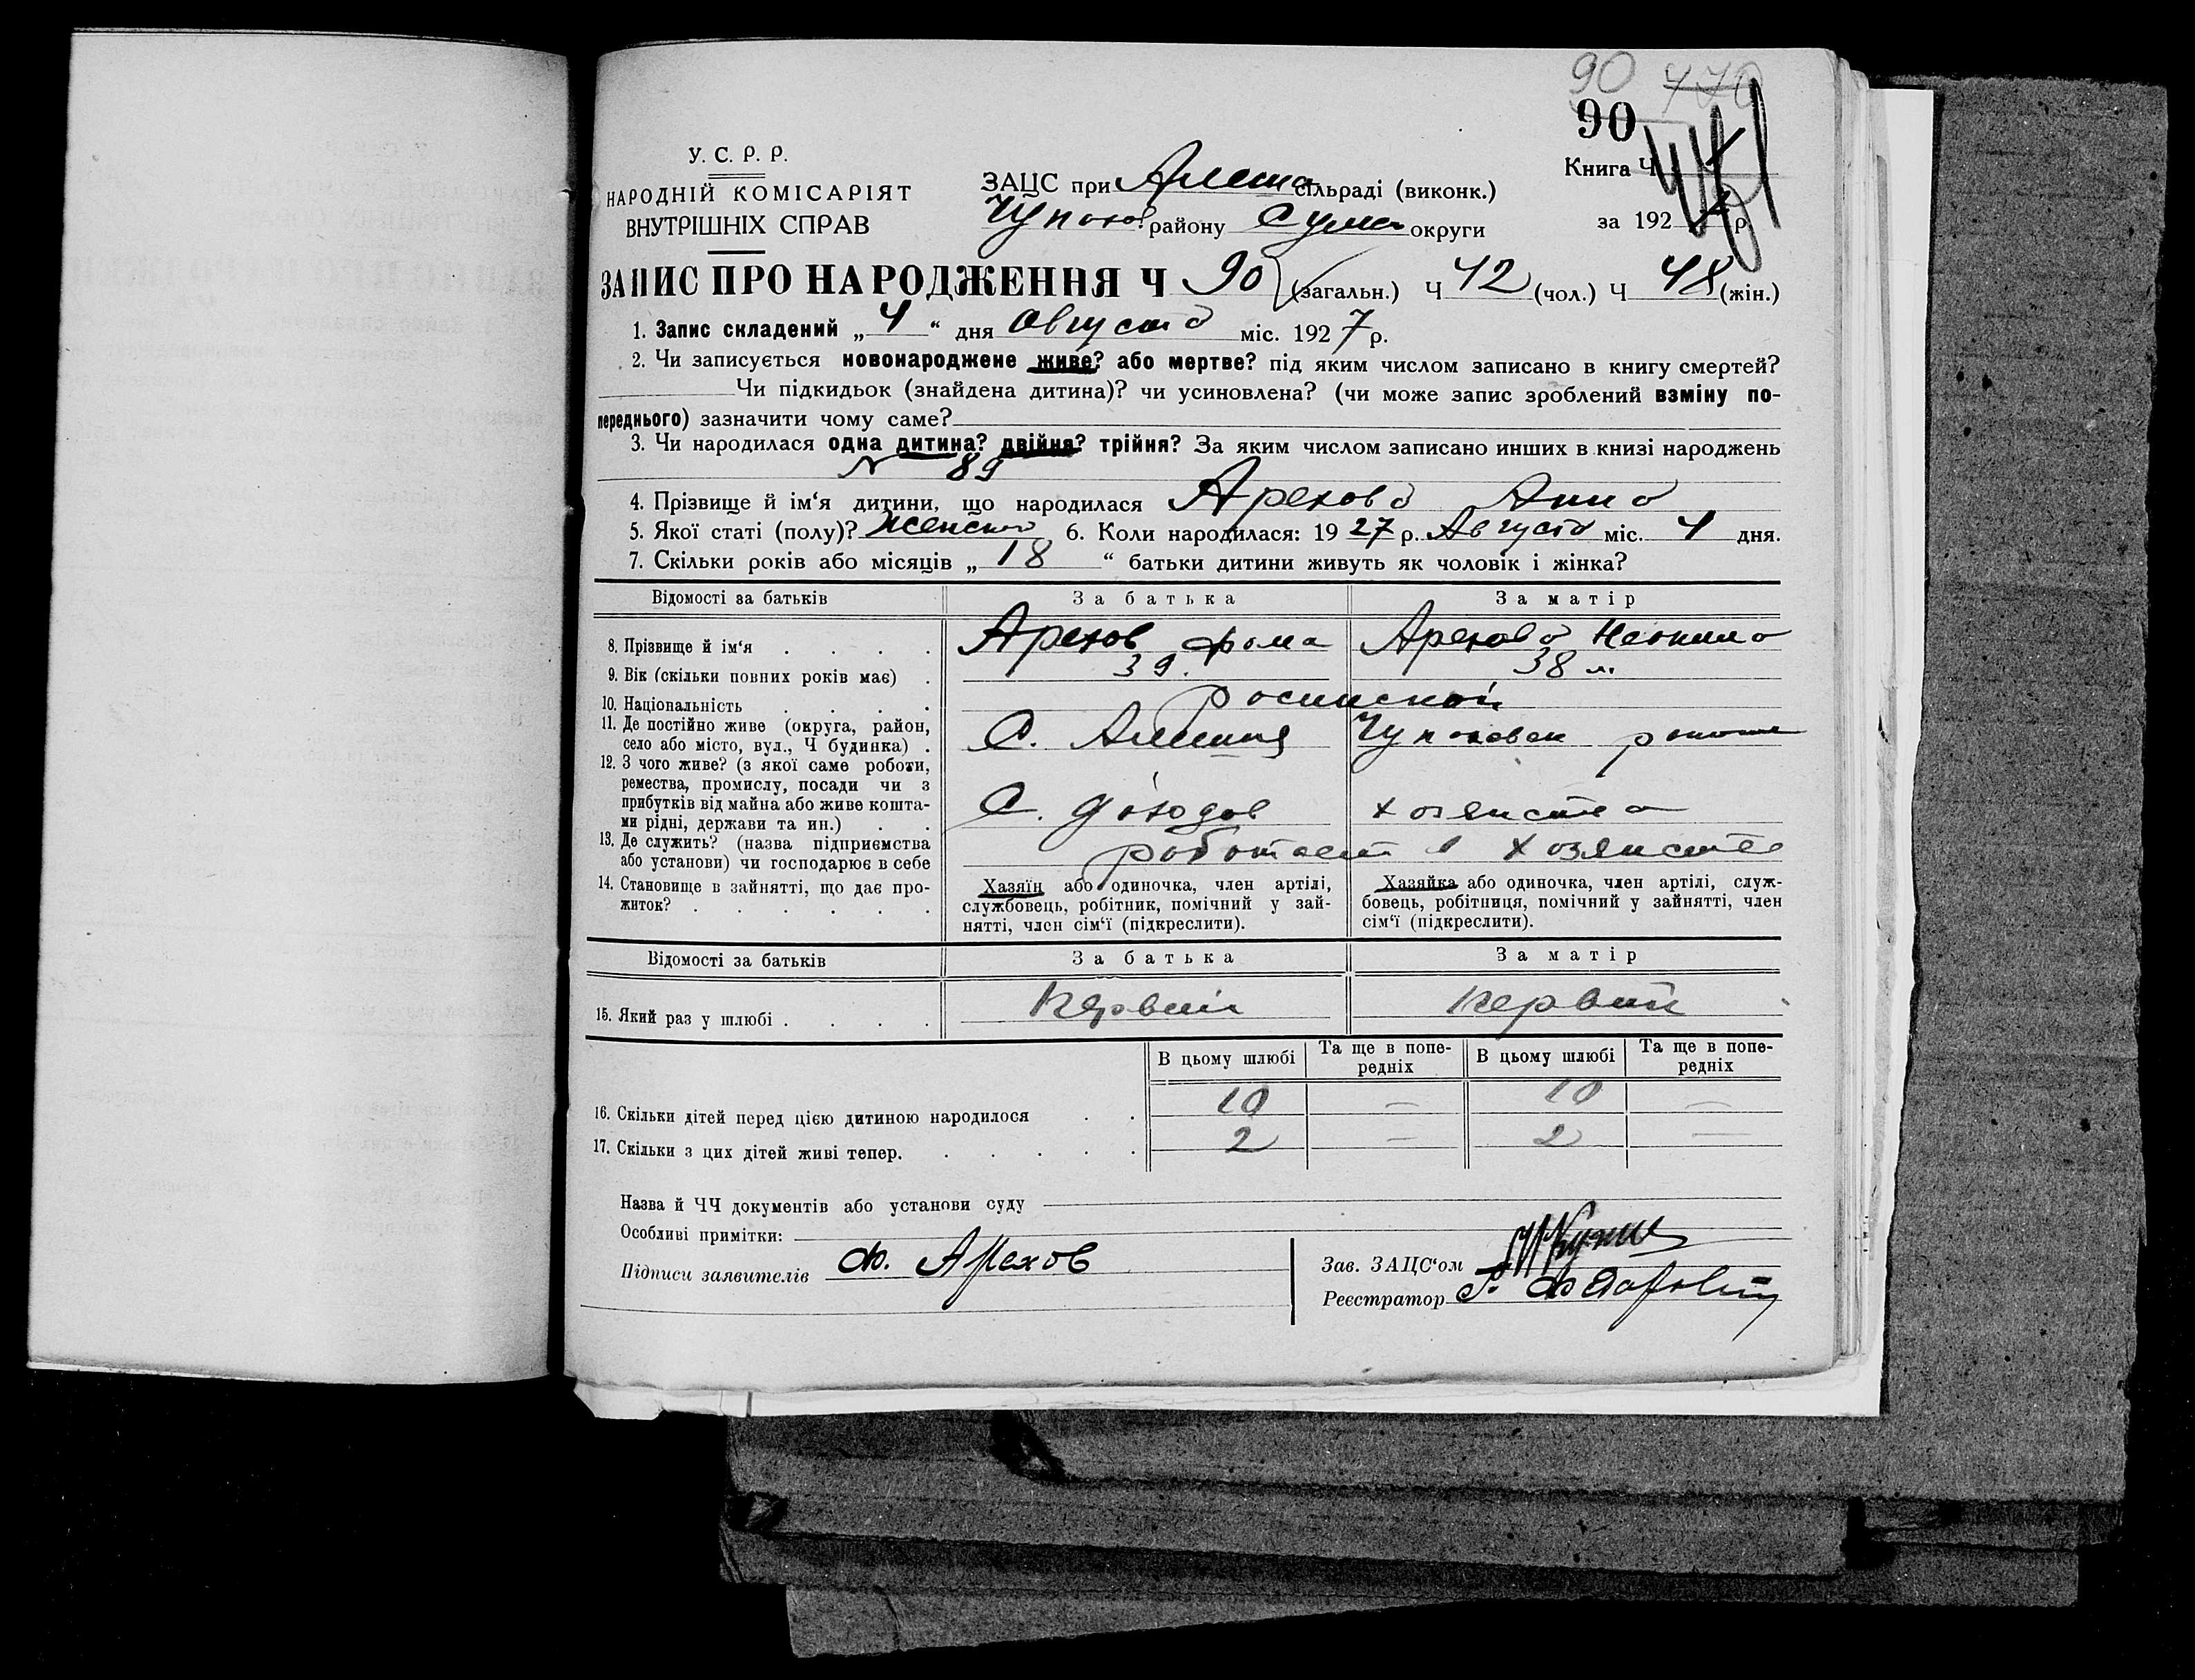 90
90
У. С. Р. Р.
НАРОДНІЙ КОМІСАРІЯТ
ВНУТРІШНІХ СПРАВ
ЗАЦС при сільраді (виконк.)
Чупахов. району Сумс округи
Книга Ч
за 192 р.
ЗАПИС ПРО НАРОДЖЕННЯ Ч 90 (загальн.) Ч 42 (чол.) Ч 48 (жін.)
1. Запис складений „ 4 “ дня Августа міс. 1927 р.
2. Чи записується новонароджене живе? або мертве? під яким числом записано в книгу смертей?
Чи підкидьок (знайдена дитина)? чи усиновлена? (чи може запис зроблений взміну по-
переднього) зазначити чому саме?
3. Чи народилася одна дитина? двійня? трійня? За яким числом записано инших в книзі народжень
N 89
4. Прізвище й ім‘я дитини, що народилася Арехова Анна
5. Якої статі (полу)? Женского 6. Коли народилася: 19 27 р. Августа міс. 4 дня.
7. Скільки років або місяців „ 18 “ батьки дитини живуть як чоловік і жінка?
Відомості за батьків За батька За матір
8. Прізвище й ім‘я Арехов Фома Арехова
9. Вік (скільки повних років має) 39. 38 л.
10. Національність
11. Де постійно живе (округа, район,
село або місто, вул., Ч будинка) С. Алешня
12. З чого живе? (з якої саме роботи,
ремества, промислу, посади чи з
прибутків від майна або живе кошта-
ми рідні, держави та ин.) С. доходов хозяйства
13. Де служить? (назва підприємства
або установи) чи господарює в себе работает в хозяйстве
14. Становище в зайнятті, що дає про-
житок?
Хазяїн або одиночка, член артілі,
службовець, робітник, помічний у зай-
нятті, член сім‘ї (підкреслити).
Хазяйка або одиночка, член артілі, служ-
бовець, робітниця, помічний у зайнятті, член
сім‘ї (підкреслити).
Відомості за батьків За батька За матір
15. Який раз у шлюбі Первый Первый
В цьому шлюбі Та ще в попе-
редніх В цьому шлюбі Та ще в попе-
редніх
16. Скільки дітей перед цією дитиною народилося 10 — 10 —
17. Скільки з цих дітей живі тепер. 2 — 2 —
Назва й ЧЧ документів або установи суду
Особливі примітки:
Підписи заявителів Ф. Арехов
Зав. ЗАЦС‘ом
Реєстратор